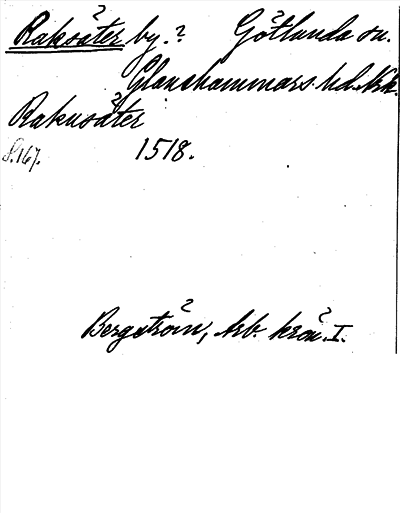 Raksäter by.? Götlunda sn.
Glanshammars hd. Nke.
Rakusäter
S. 167. 1518.
Bergström, Arb. krön. I.